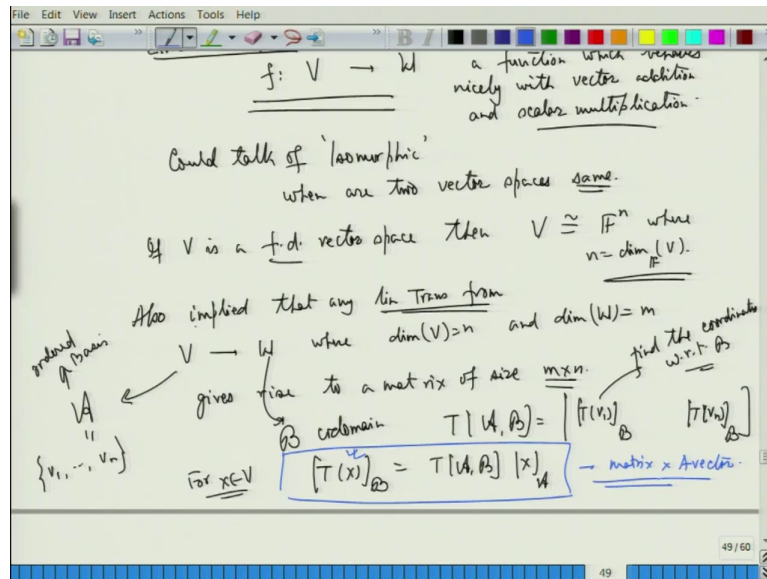 File Edit View Insert Actions Tools Help
B I
f: V → W a function which behaves
nicely with vector addition
and scalar multiplication.
Could talk of 'Isomorphic'
when are two vector spaces same.
If V is a f.d. vector space then V ≅ 𝔽ⁿ where
n = dim_𝔽(V).
Also implied that any lin Trans from
V → W where dim(V)=n and dim(W)=m
ordered Basis
gives rise to a matrix of size m×n.
find the coordinates
w.r.t. B
A
B codomain T[A, B] = [[T(v₁)]_B [T(vₙ)]_B]
=
{v₁, .., vₙ}
For x∈V [T(x)]_B = T[A, B] [x]_A → matrix × A vector.
49 / 60
49